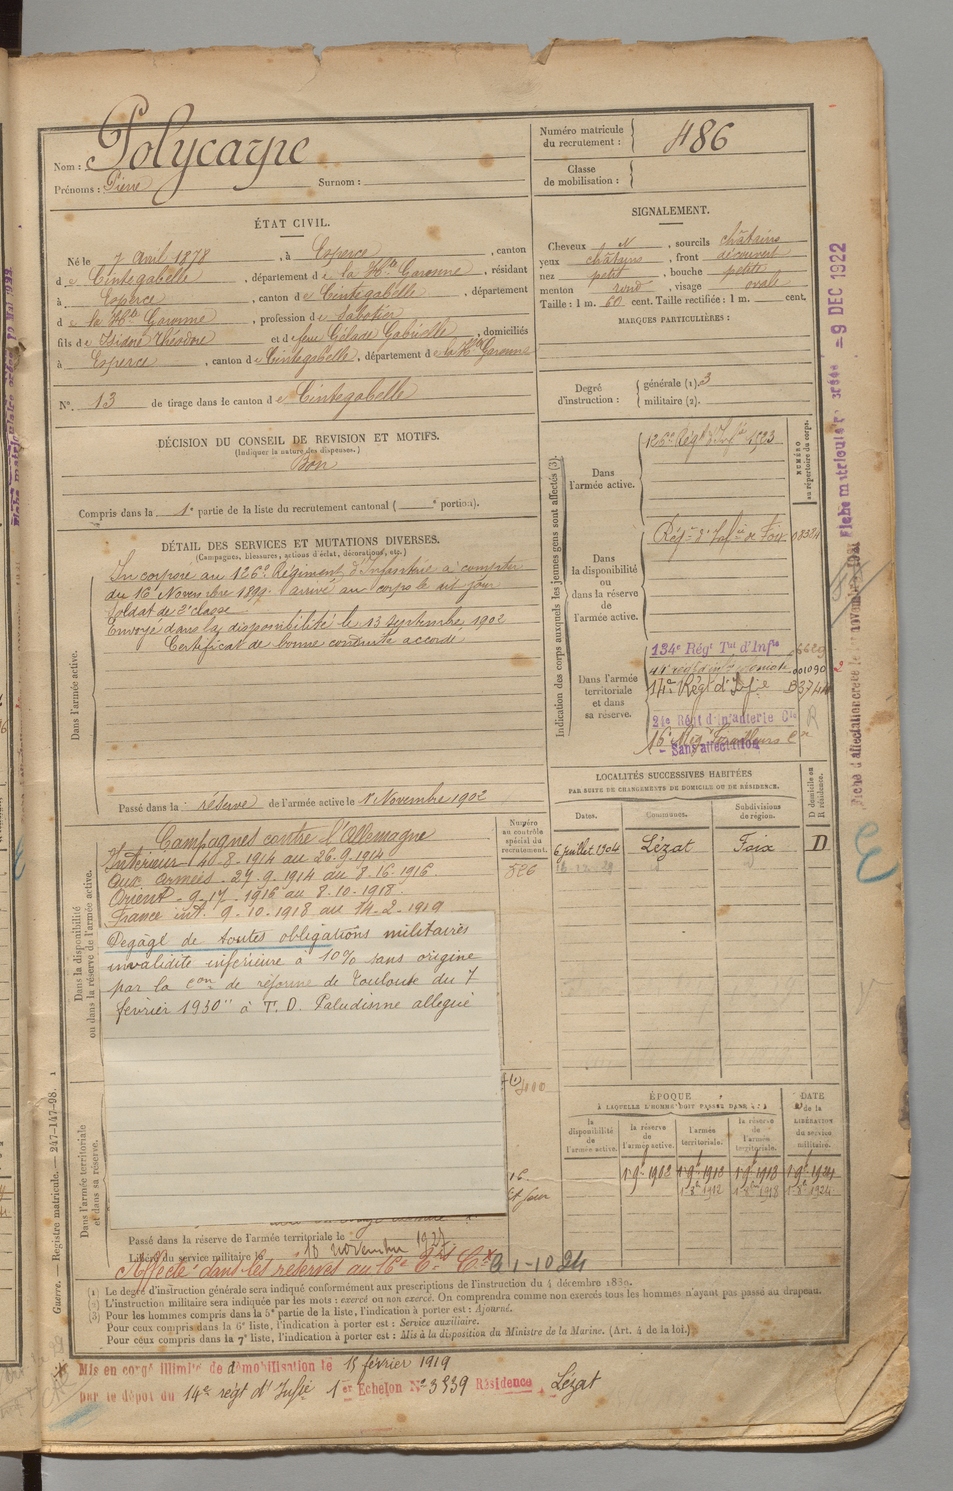 Nom : Polycarpe
Prénoms : Pierre Surnom :
Numéro matricule du recrutement : 486
Classe de mobilisation :
ÉTAT CIVIL.
Né le 7 avril 1878, à Esperce, canton
de Cintegabelle, département de la Hte Garonne, résidant
à Esperce, canton de Cintegabelle, département
de la Hte Garonne, profession de Sabotier
fils de Isidore Théodore et de feue Célade Gabrielle, domiciliés
à Esperce, canton de Cintegabelle, département de la Hte Garonne
N°. 13 de tirage dans le canton de Cintegabelle
SIGNALEMENT.
Cheveux N, sourcils châtains
yeux châtains, front découvert
nez petit, bouche petite
menton rond, visage ovale
Taille : 1 m. 60 cent. Taille rectifiée : 1 m. cent.
MARQUES PARTICULIÈRES :
Degré d'instruction : générale (1). 3
militaire (2).
DÉCISION DU CONSEIL DE REVISION ET MOTIFS.
(Indiquer la nature des dispenses.)
Bon
Compris dans la 1e partie de la liste du recrutement cantonal ( e portion).
DÉTAIL DES SERVICES ET MUTATIONS DIVERSES.
(Campagnes, blessures, actions d'éclat, décorations, etc.)
Dans l'armée active.
Incorporé au 126e Régiment d'Infanterie à compter
du 16 Novembre 1899. arrivé au corps le dit jour
Soldat de 2e classe
Envoyé dans la disponibilité le 13 septembre 1902
Certificat de bonne conduite accordé
Passé dans la réserve de l'armée active le 1er Novembre 1902
Indication des corps auxquels les jeunes gens sont affectés (3).
NUMÉRO au répertoire du corps.
Dans l'armée active.
126e Régt d'Infie 1,923
Dans la disponibilité ou dans la réserve de l'armée active.
Régt d'Infie de Foix 03324
Dans l'armée territoriale et dans sa réserve.
134e Régt Tal d'Infie
001090
14e Régt d'Infie
24e Régt d'Infanterie Cle
- Sans affectation
LOCALITÉS SUCCESSIVES HABITÉES
PAR SUITE DE CHANGEMENTS DE DOMICILE OU DE RÉSIDENCE.
Dates. Communes. Subdivisions de région. D domicile ou R résidence.
6 juillet 1904 Lézat Foix D
Numéro au contrôle spécial du recrutement.
Dans la disponibilité ou dans la réserve de l'armée active.
Campagnes contre l'Allemagne
Intérieur 14-8-1914 au 26-9-1914
Aux armées - 27-9-1914 au 8-16-1916
Orient - 9-17-1916 au 8-10-1918
France int. 9-10-1918 au 14-2-1919
Dégagé de toutes obligations militaires
invalidité inférieure à 10% sans origine
par la Con de réforme de Toulouse du 7
février 1930 " à T. D. Paludisme allégué
Dans l'armée territoriale et dans sa réserve.
ÉPOQUE
À LAQUELLE L'HOMME DOIT PASSER DANS :
DATE de la LIBÉRATION du service militaire.
la disponibilité de l'armée active. la réserve de l'armée active. l'armée territoriale. la réserve de l'armée territoriale.
Passé dans la réserve de l'armée territoriale le
Libéré du service militaire le 10 novembre 1927
Affecté dans les réserves au 16e
(1) Le degré d'instruction générale sera indiqué conformément aux prescriptions de l'instruction du 4 décembre 1889.
(2) L'instruction militaire sera indiquée par les mots : exercé ou non exercé. On comprendra comme non exercés tous les hommes n'ayant pas passé au drapeau.
(3) Pour les hommes compris dans la 5e partie de la liste, l'indication à porter est : Ajourné.
Pour ceux compris dans la 6e liste, l'indication à porter est : Service auxiliaire.
Pour ceux compris dans la 7e liste, l'indication à porter est : Mis à la disposition du Ministre de la Marine. (Art. 4 de la loi.)
Mis en congé illimité de démobilisation le 15 février 1919
par le dépôt du 14e régt d'Infie 1er Echelon N° 3339 Résidence Lézat
Guerre. — Registre matricule. — 247-147-98.
Fiche matriculaire créée = 9 DEC 1922